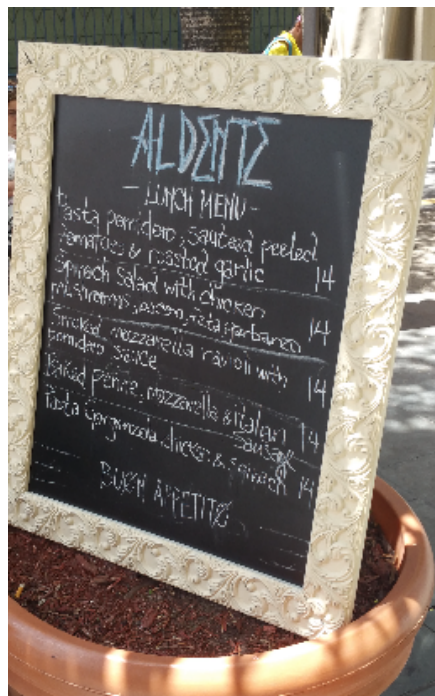 ALDENTE
- LUNCH MENU -
Pasta pomidoro, sauteed peeled
tomatoes & roasted garlic 14
Spinach Salad with chicken
mushrooms, feta, garbanzo 14
Smoked mozzarella ravioli with
pomidoro sauce 14
Baked Penne, mozzarella & italian
sausage 14
Pasta gorgonzola, chicken & spinach 14
BUEN APPETITO